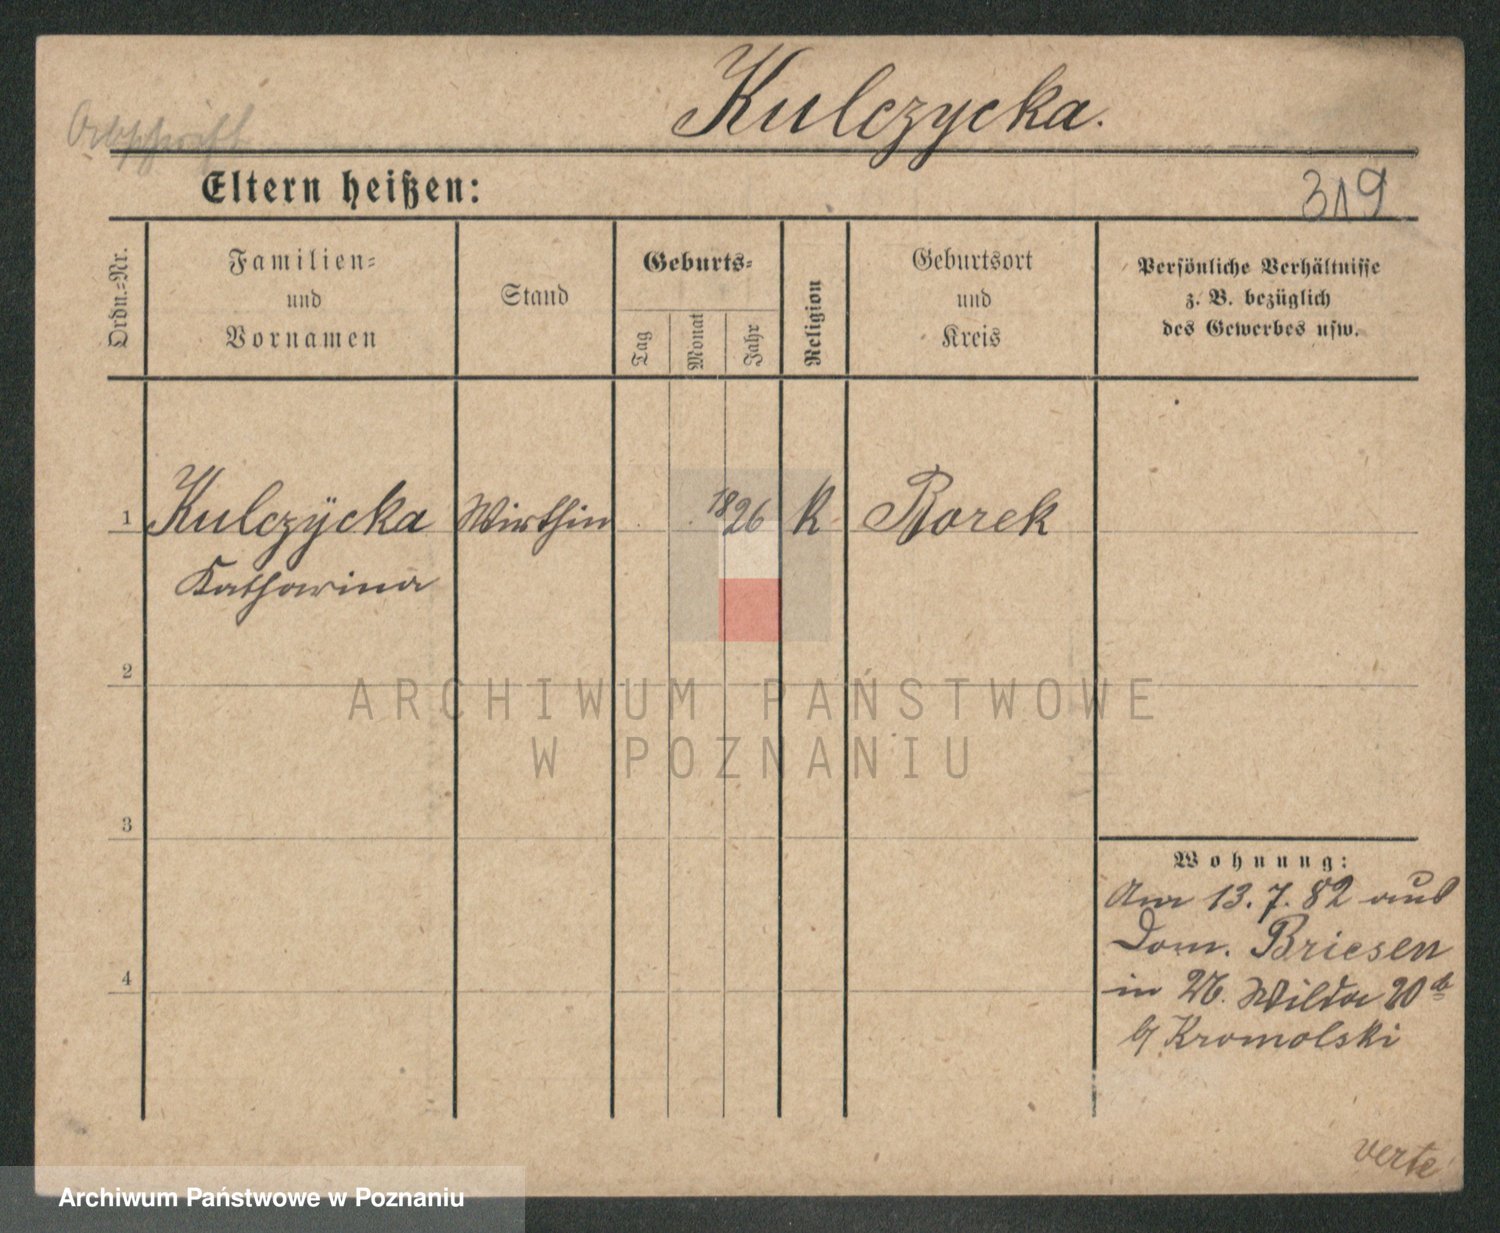 Kulczycka.
Abschrift
Eltern heißen:
319
Ordn.=Nr.
Familien=
und
Vornamen
Stand
Geburts=
Tag
Monat
Jahr
Religion
Geburtsort
und
Kreis
Persönliche Verhältnisse
z. B. bezüglich
des Gewerbes usw.
1
Kulczÿcka
Katharina
Wirthin
1826
K
Borek
2
3
4
Wohnung:
Am 13.7.82 aus
Dom. Briesen
in Wilda
b/ Kromolski
verte
ARCHIWUM PAŃSTWOWE
W POZNANIU
Archiwum Państwowe w Poznaniu